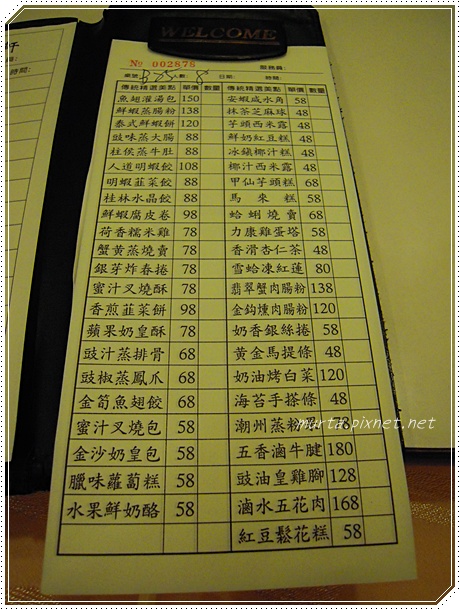 WELCOME
№ 002875
服務員:
桌號 B25 人數 8 日期: 時間:
傳統精選美點 單價 數量 傳統精選美點 單價 數量
魚翅灌湯包 150 安蝦咸水角 58
鮮蝦蒸腸粉 138 抹茶芝麻球 48
泰式鮮蝦餅 120 芋頭西米露 48
豉味蒸大腸 88 鮮奶紅豆糕 48
柱侯蒸牛肚 88 冰鎮椰汁糕 48
人道明蝦餃 108 椰汁西米露 48
明蝦韮菜餃 88 甲仙芋頭糕 68
桂林水晶餃 88 馬來糕 58
鮮蝦腐皮卷 98 蛤蜊燒賣 68
荷香糯米雞 78 力康雞蛋塔 58
蟹黃蒸燒賣 78 香滑杏仁茶 48
銀芽炸春捲 78 雪蛤凍紅蓮 80
蜜汁叉燒酥 78 翡翠蟹肉腸粉 138
香煎韮菜餅 98 金鈎燻肉腸粉 120
蘋果奶皇酥 78 奶香銀絲捲 58
豉汁蒸排骨 68 黃金馬提條 48
豉椒蒸鳳爪 68 奶油烤白菜 120
金筍魚翅餃 68 海苔手搭條 48
蜜汁叉燒包 58 潮州蒸粉
金沙奶皇包 58 五香滷牛腱 180
臘味蘿蔔糕 58 豉油皇雞腳 128
水果鮮奶酪 58 滷水五花肉 168
紅豆鬆花糕 58
marta.pixnet.net
時間: